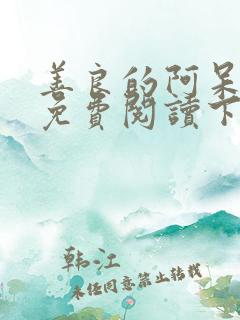 善良的阿呆
免費閱讀下
韩江
未经同意禁止转载